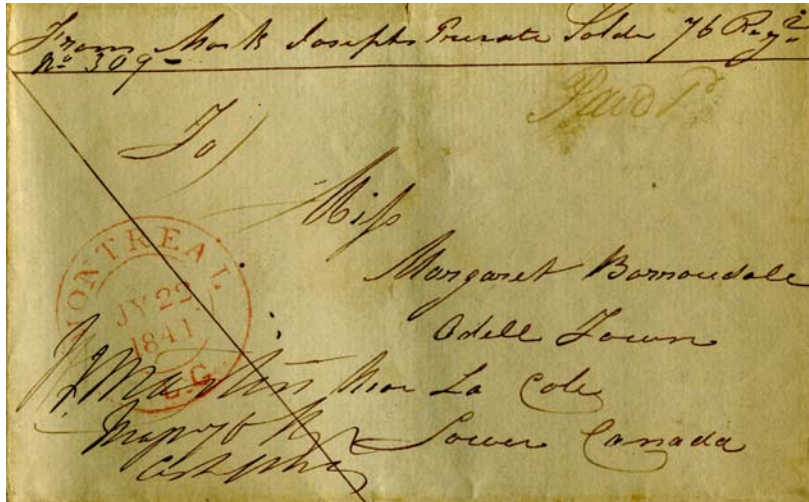 From Mark Josephs Private Soldr 76 Regt
No 309
Paid 1d
To
Miss
Margaret Borroudale
Odell Town
Near La Cole
Lower Canada
MONTREAL
JY 22
1841
L.C.
Martin
Major 76